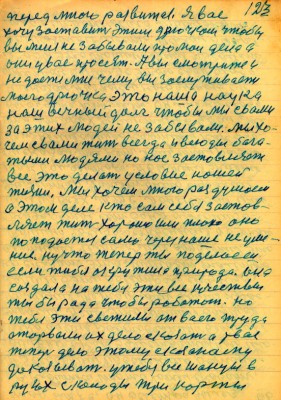 12/3
перед много развитися. Я вас
хочу заставит этим дрючком чтобы
вы мене не забывали про мои дела а
они у вас просят. А вы смотрите и
недостойте чему вы заслуживаете
моего дрючка это наша наука
наш вечный долг чтобы мы с вами
за этих людей не забывали. Мы хо-
чем с вами жить всегда и всюду бога-
тыми людями но нас заставляют
все это делат условие нашей
жизни, мы хочем много раздумат
о этом деле кто сам себя застав-
ляет жит хорошо или плохо оно
попадается само через наше не уме-
ние. ну что теперь ты поделаеш
если тибя окружила природа. она
создала на тебя эти все качества
ты бы рада чтобы работат. но
тебя эти свежили от всего труда
оторвали их дело сказат а у вас
тепер дело этому сказаному
доказыват. у тебя все шансы в
руках с колоды три карты